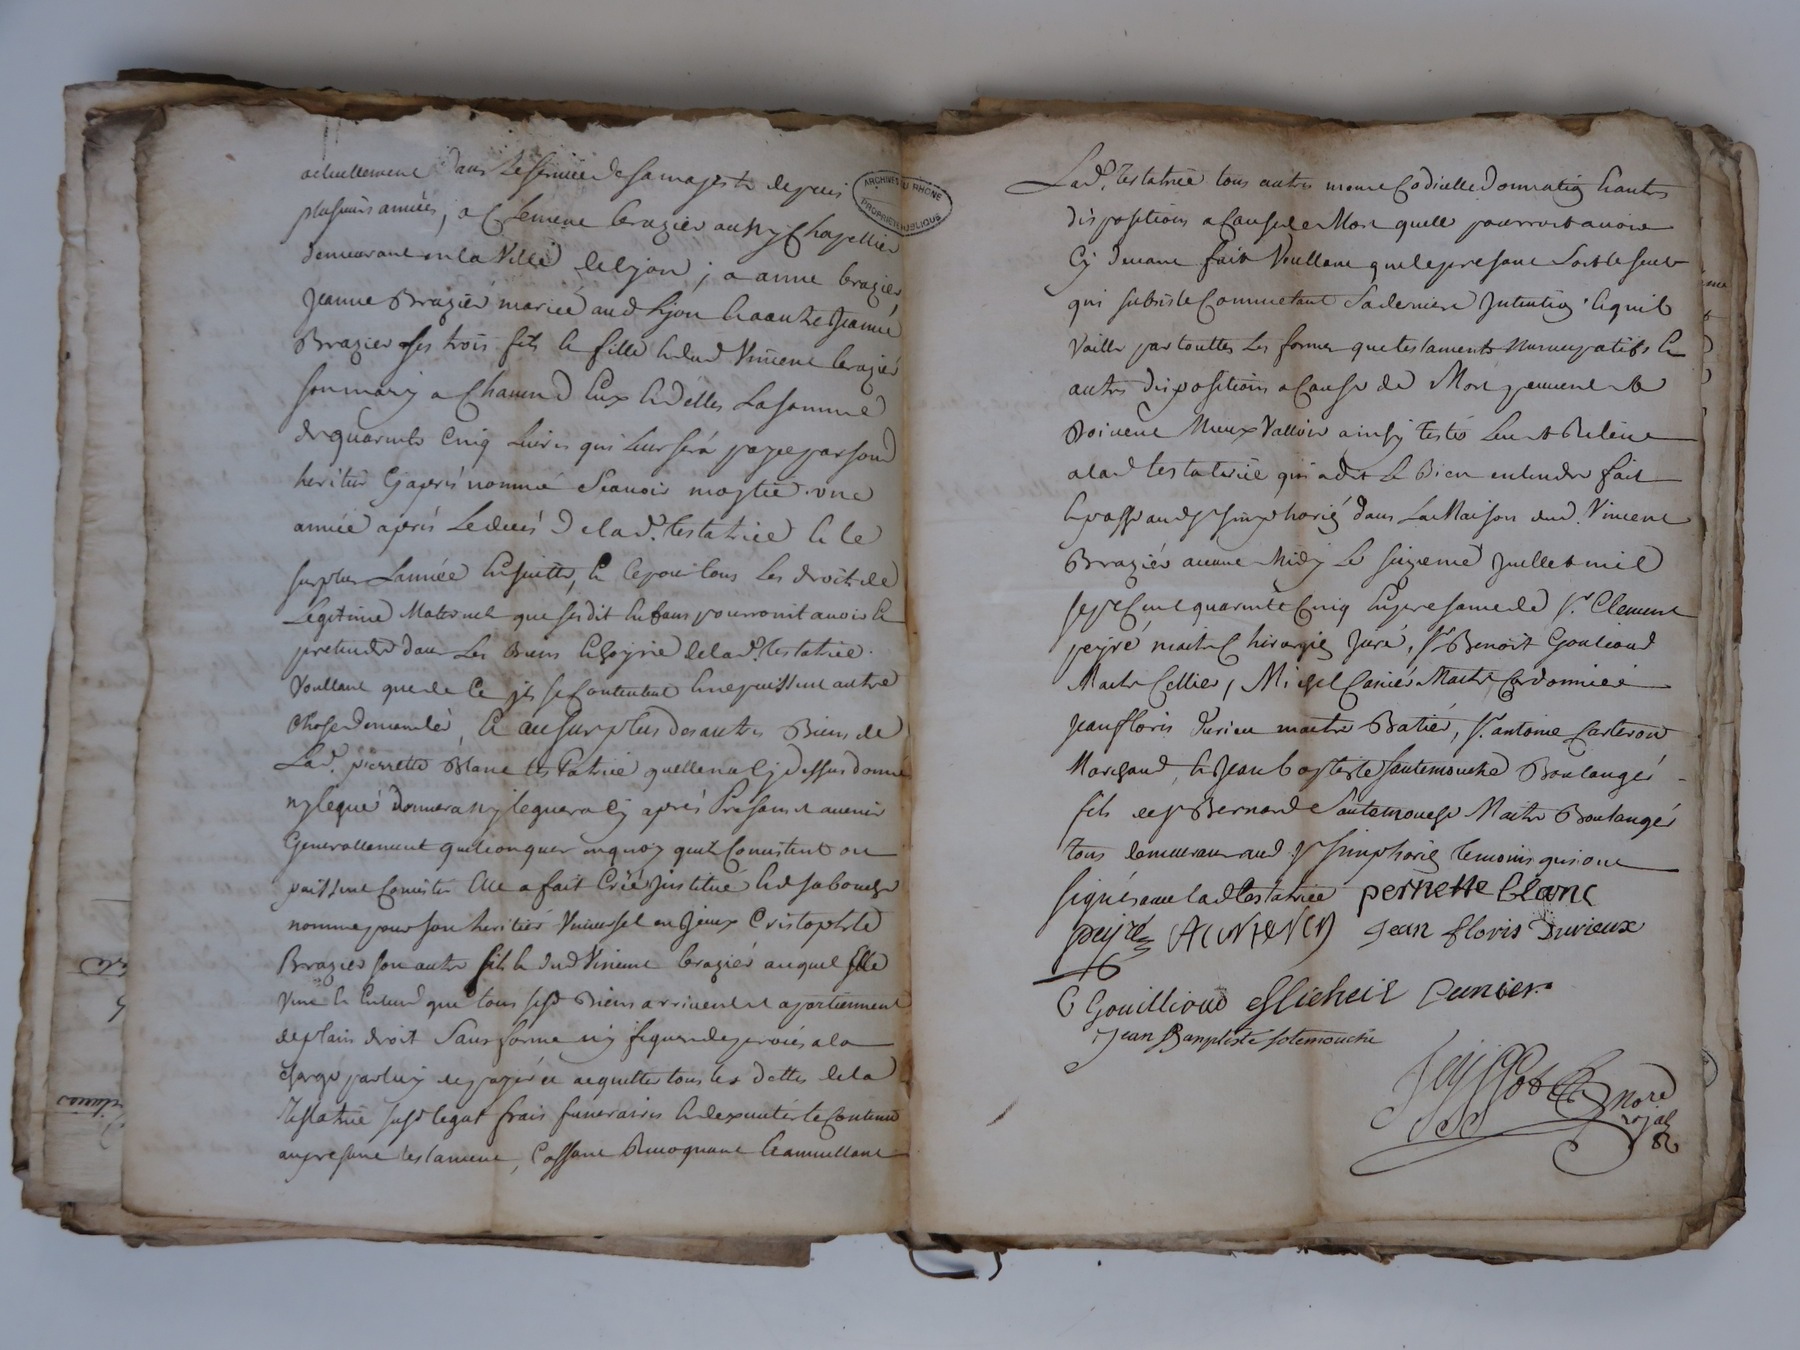 actuellement dans le service de sa majeste depuis
plusieurs années, a Clemene brazier aussy Chapellier
demeurant en la Ville de lyon ; a anne brazier
Jeanne Brazier mariée aud lyon & a autre Jeanne
Brazier ses trois fils & fille & dud Vincent brazier
son mary a Chacund Eux & delles La somme
de quarante Cinq Livres qui Leur sera payée par sond
heritier Cy après nommé Scavoir moytié une
année après Le deces de lad. testatrice & le
surplus Lannée Ensuitte, & ce pour tous Les droits de
Legitime Maternel que sesdit Enfans pourroint avoir &
pretendre dans Les Biens & hoyrie de lad. testatrice.
Voullant que de Ce ils se Contentent & ne puissent autre
Chose demander, & au surplus des autres Biens de
Lad. pierrette Blanc testatrice quelle na Cy dessus donné
ny legué donnera ny leguera Cy après Presans et avenir
Generallement quelconques en quoy quil Consistent ou
puissent Consister Elle a fait Créé Institué & de sa bouche
nommé pour son heritier Universel en Jeux Cristophle
Brazier son autre fils & dud Vincent brazier auquel Elle
Veut & Entend que tous sesd Biens arrivent et apartiennent
de plain droit Sans forme ny figure de procés a la
charge par luy de payer et acquitter tous les dettes de la
Testatrice sesd legat frais funeraires & dexecuter le Contenu
au present testament, Cassant Revoquant & annullant
ARCHIVES DU RHONE
PROPRIETE PUBLIQUE
Lad. testatrice tous autres meme Codicille donnation & autres
dispositions a Cause de Mort quelle pourroit avoir
Cy devant fait Voullant que le present Soit le seul
qui subsiste Comme etant Sa derniere Intention & quil
Vaille par touttes Les formes que testaments Nuncupatifs &
autres dispositions a Cause de Mort peuvent et
Doivent Mieux Valloir ainsy testé Leu et Releue
a lad testatrice qui a dit Le Bien entendre fait
& passé aud st simphorien dans La Maison dud. Vincent
Brazier avant Midy Le seizieme Juillet mil
sept Cent quarante Cinq En presence de sr. Clement
peyré maitre Chirurgien Juré, sr Benoit Goulioud
Maitre Cellier, Michel Cunier Maitre Cordonnier
Jean floris durieu maitre Batier, sr. antoine Carteron
Marchand, & Jean baptiste Sautemouche Boulanger
fils de sr Bernard Sautemouche Maitre Boulanger
tous demeurant aud st simphorien temoins qui ont
signés avec lad testatrice pernette blanc
peyre Jean floris Durieux
Gouillioud Micheil Cunier.
Jean Banptiste sotemouche
nore
royal